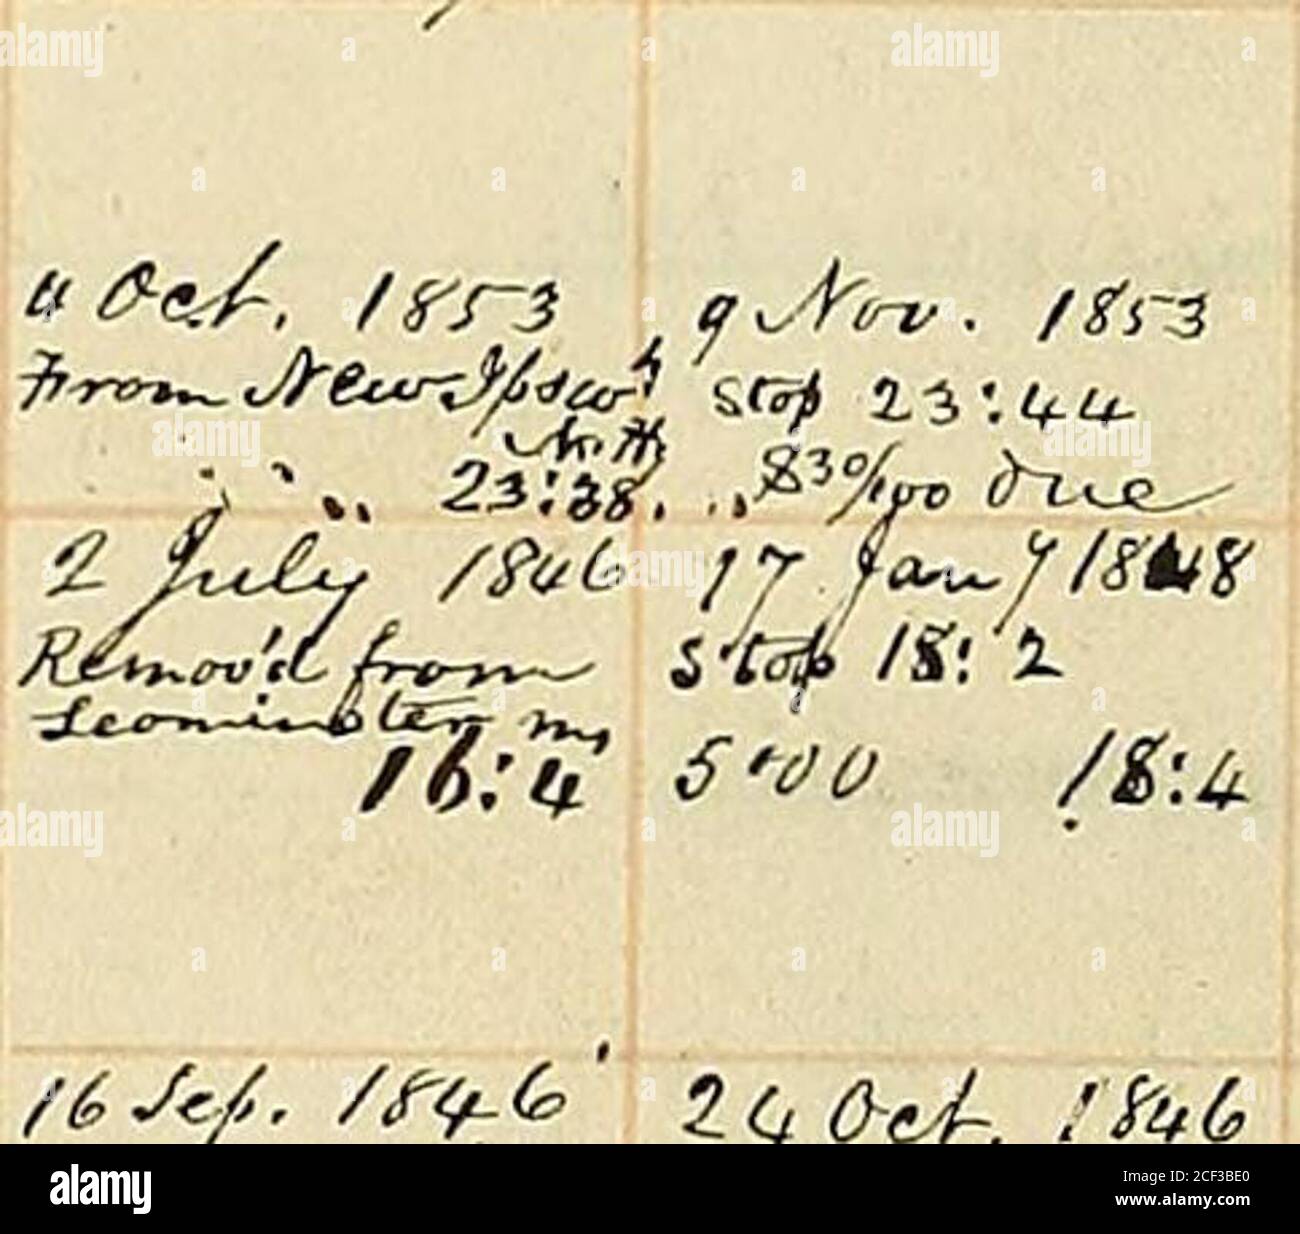 11 Oct. 1853
From New Ipswh
N. H.
" " " 23:38.
9 Nov. 1853
Stop 23:44
" $3 0/100 due
2 July 1846
Remov'd from
Leominster Ms
16:4
17 Jany 1848
Stop 18:2
5.00 18:4
16 Sep. 1846
24 Oct. 1846
alamy
a
alamy
www.alamy.com
Image ID: 2CF3BE0